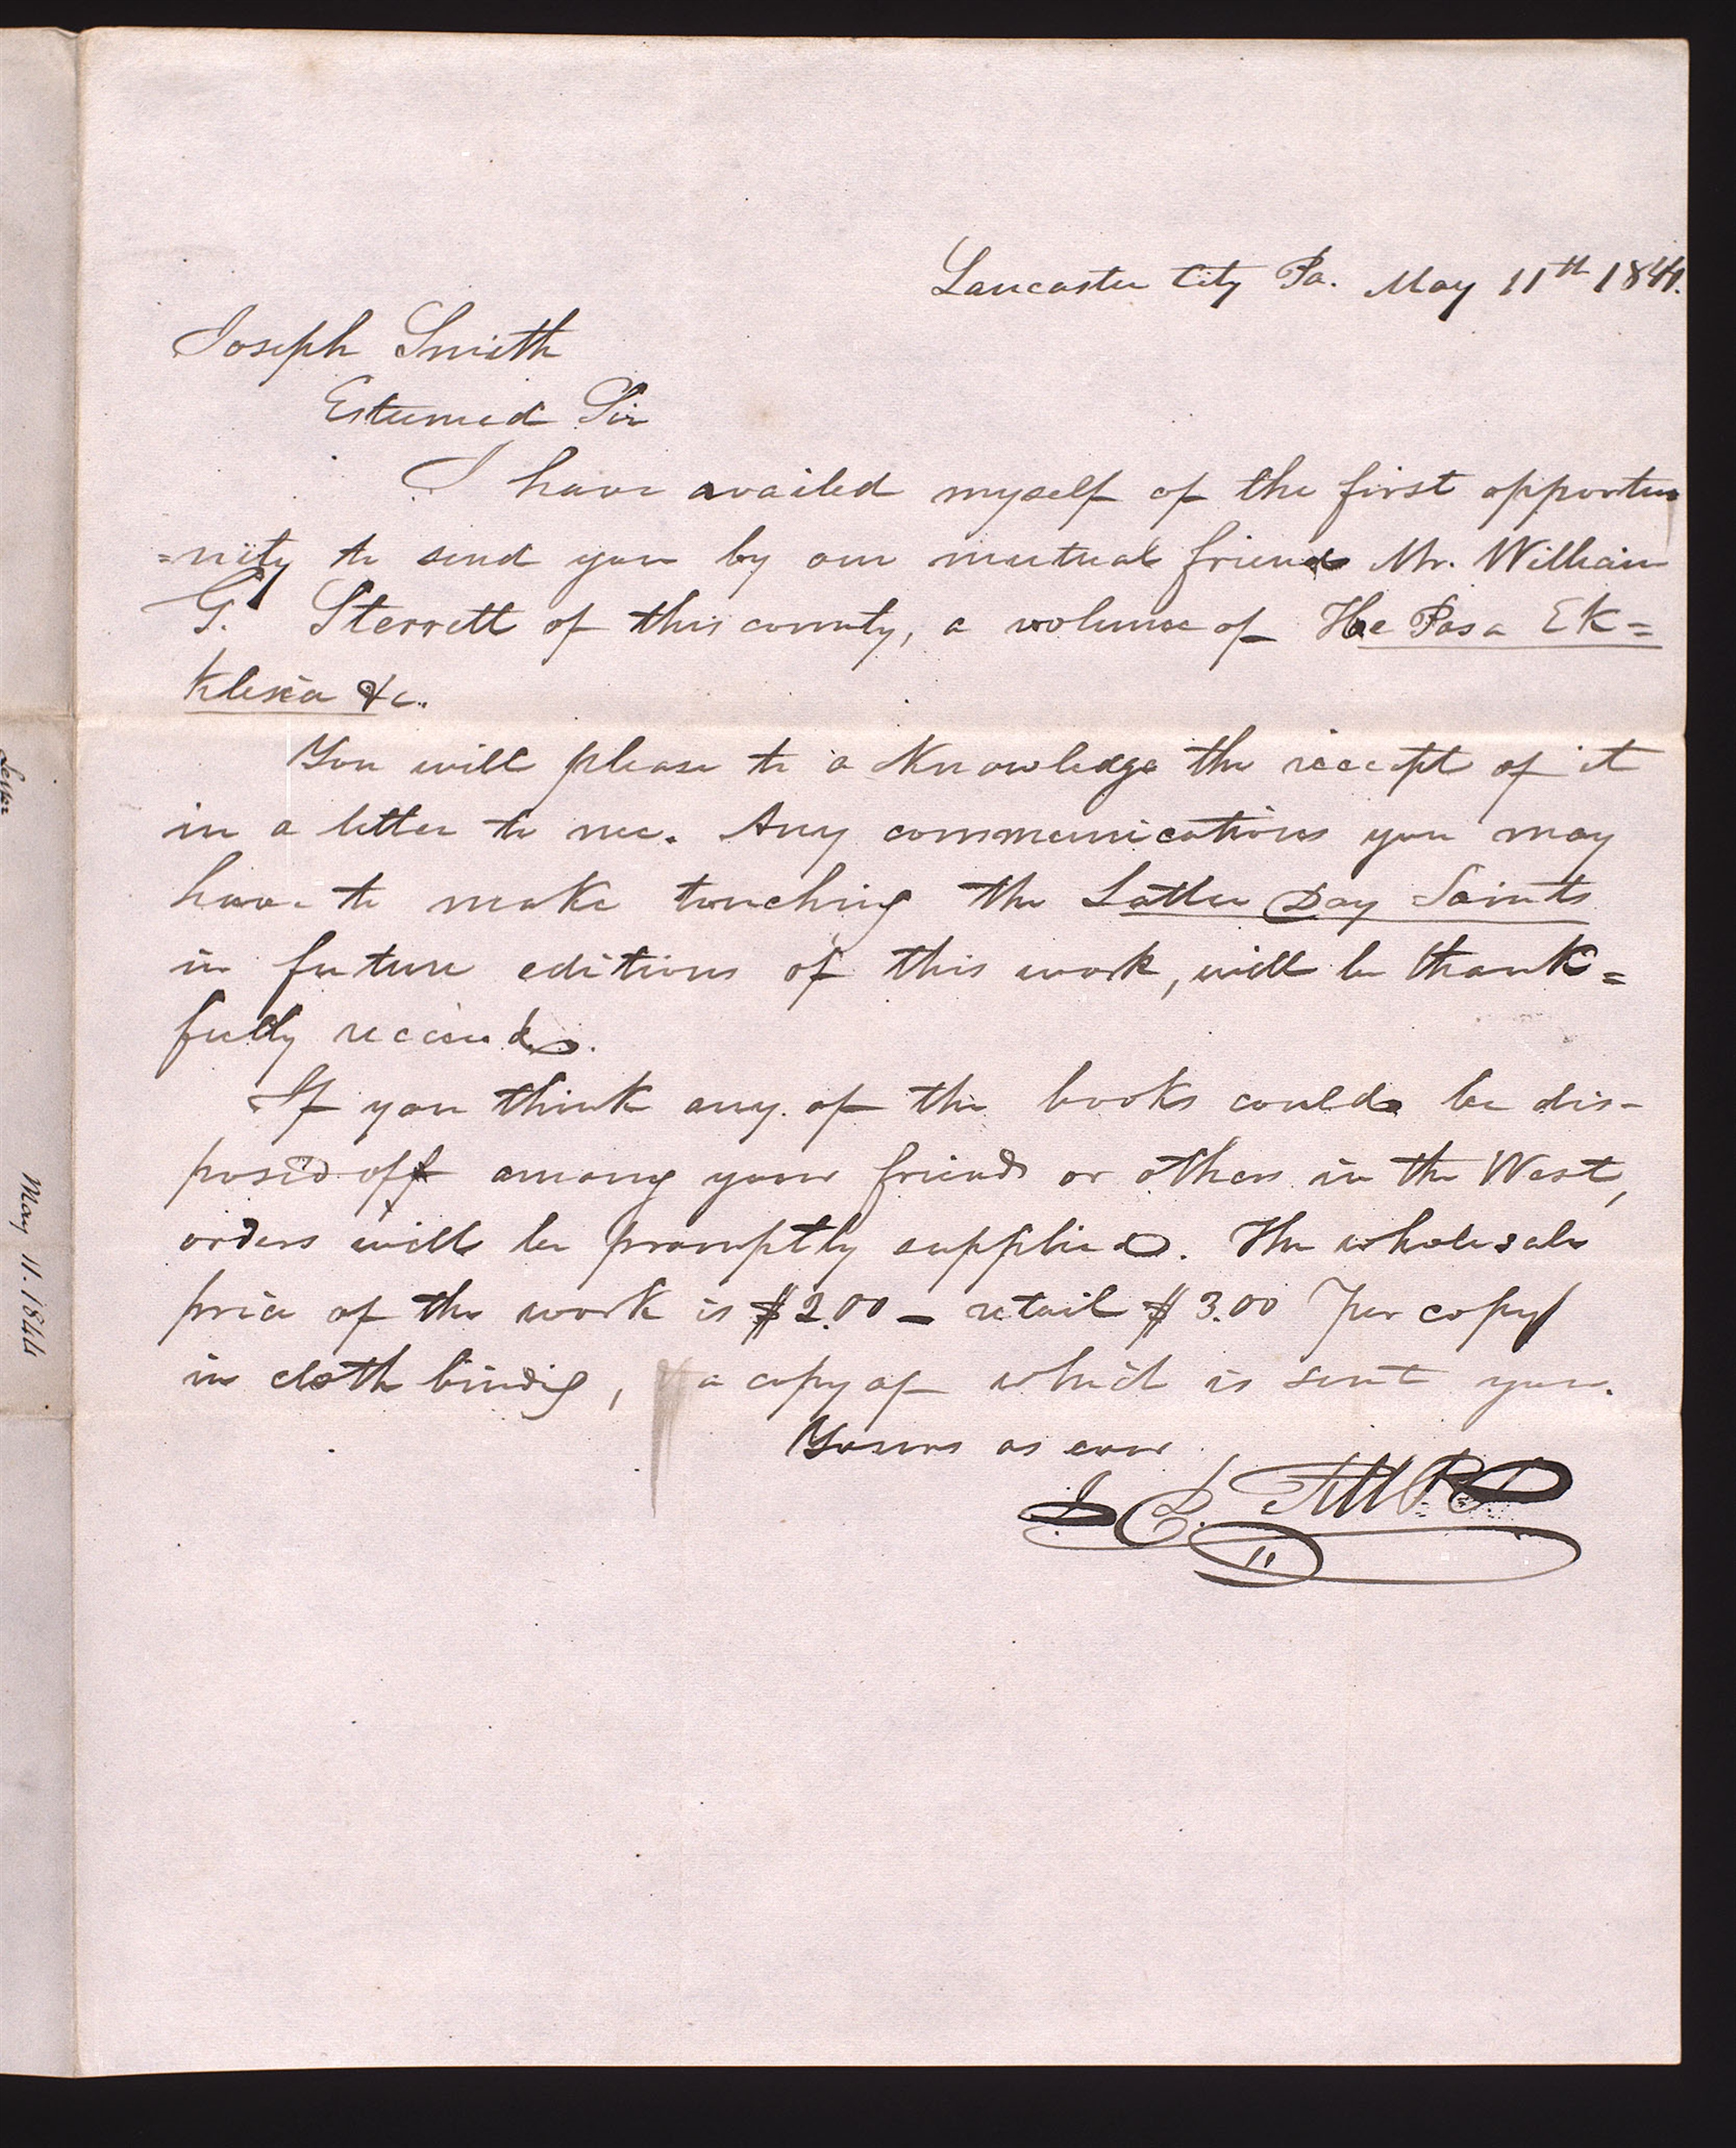 Lancaster City Pa. May 11th 1844.
Joseph Smith
Esteemed Sir
I have availed myself of the first opportu
=nity to send you by our mutual friend Mr. William
G. Sterrett of this county, a volume of He Pasa Ek=
klesia &c.
You will please to a Knowledge the receipt of it
in a letter to me. Any communications you may
have to make touching the Latter Day Saints
in future editions of this work, will be thank=
fully received.
If you think any of the books could be dis-
posed off among your friends or others in the West,
orders will be promptly supplied. The wholesale
price of the work is $2.00 – retail $3.00 Per copy
in cloth bindig, a copy of which is sent you.
Yours as ever
I
Letter
May 11. 1844